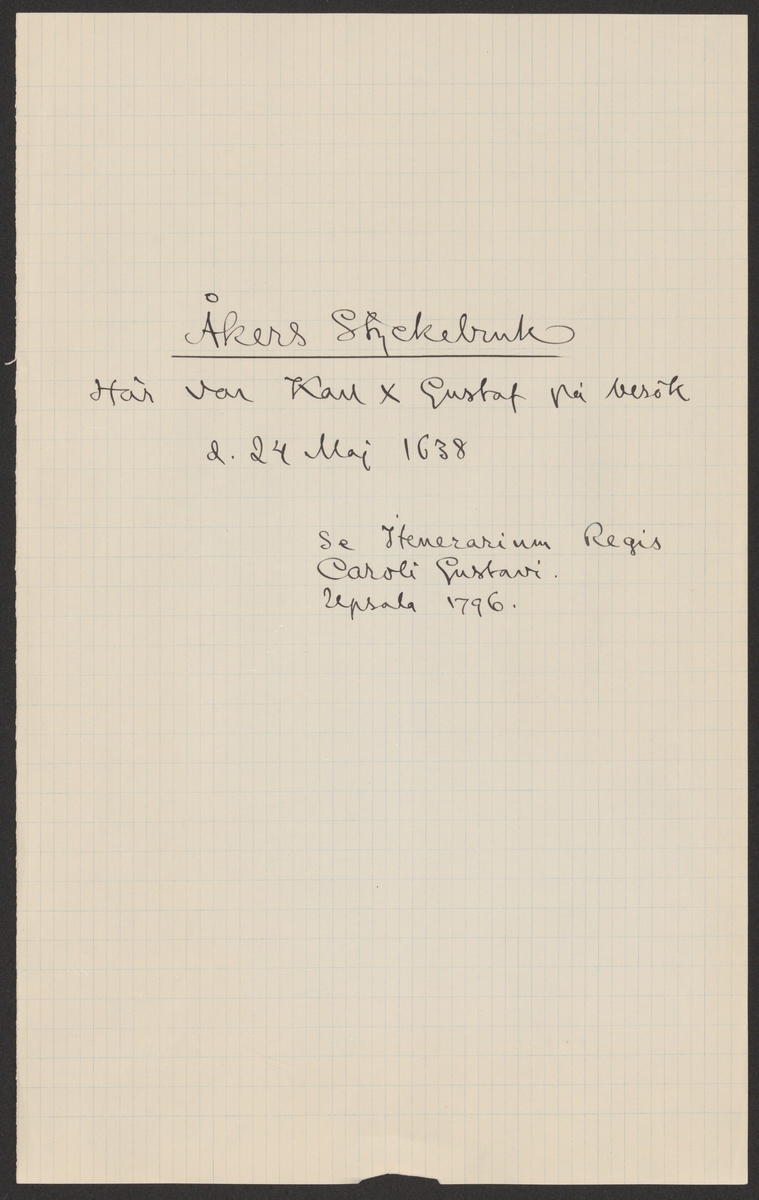 Åkers Styckebruk
Här var Karl X Gustaf på besök
d. 24 Maj 1638
Se Itenerarium Regis
Caroli Gustavi.
Upsala 1796.